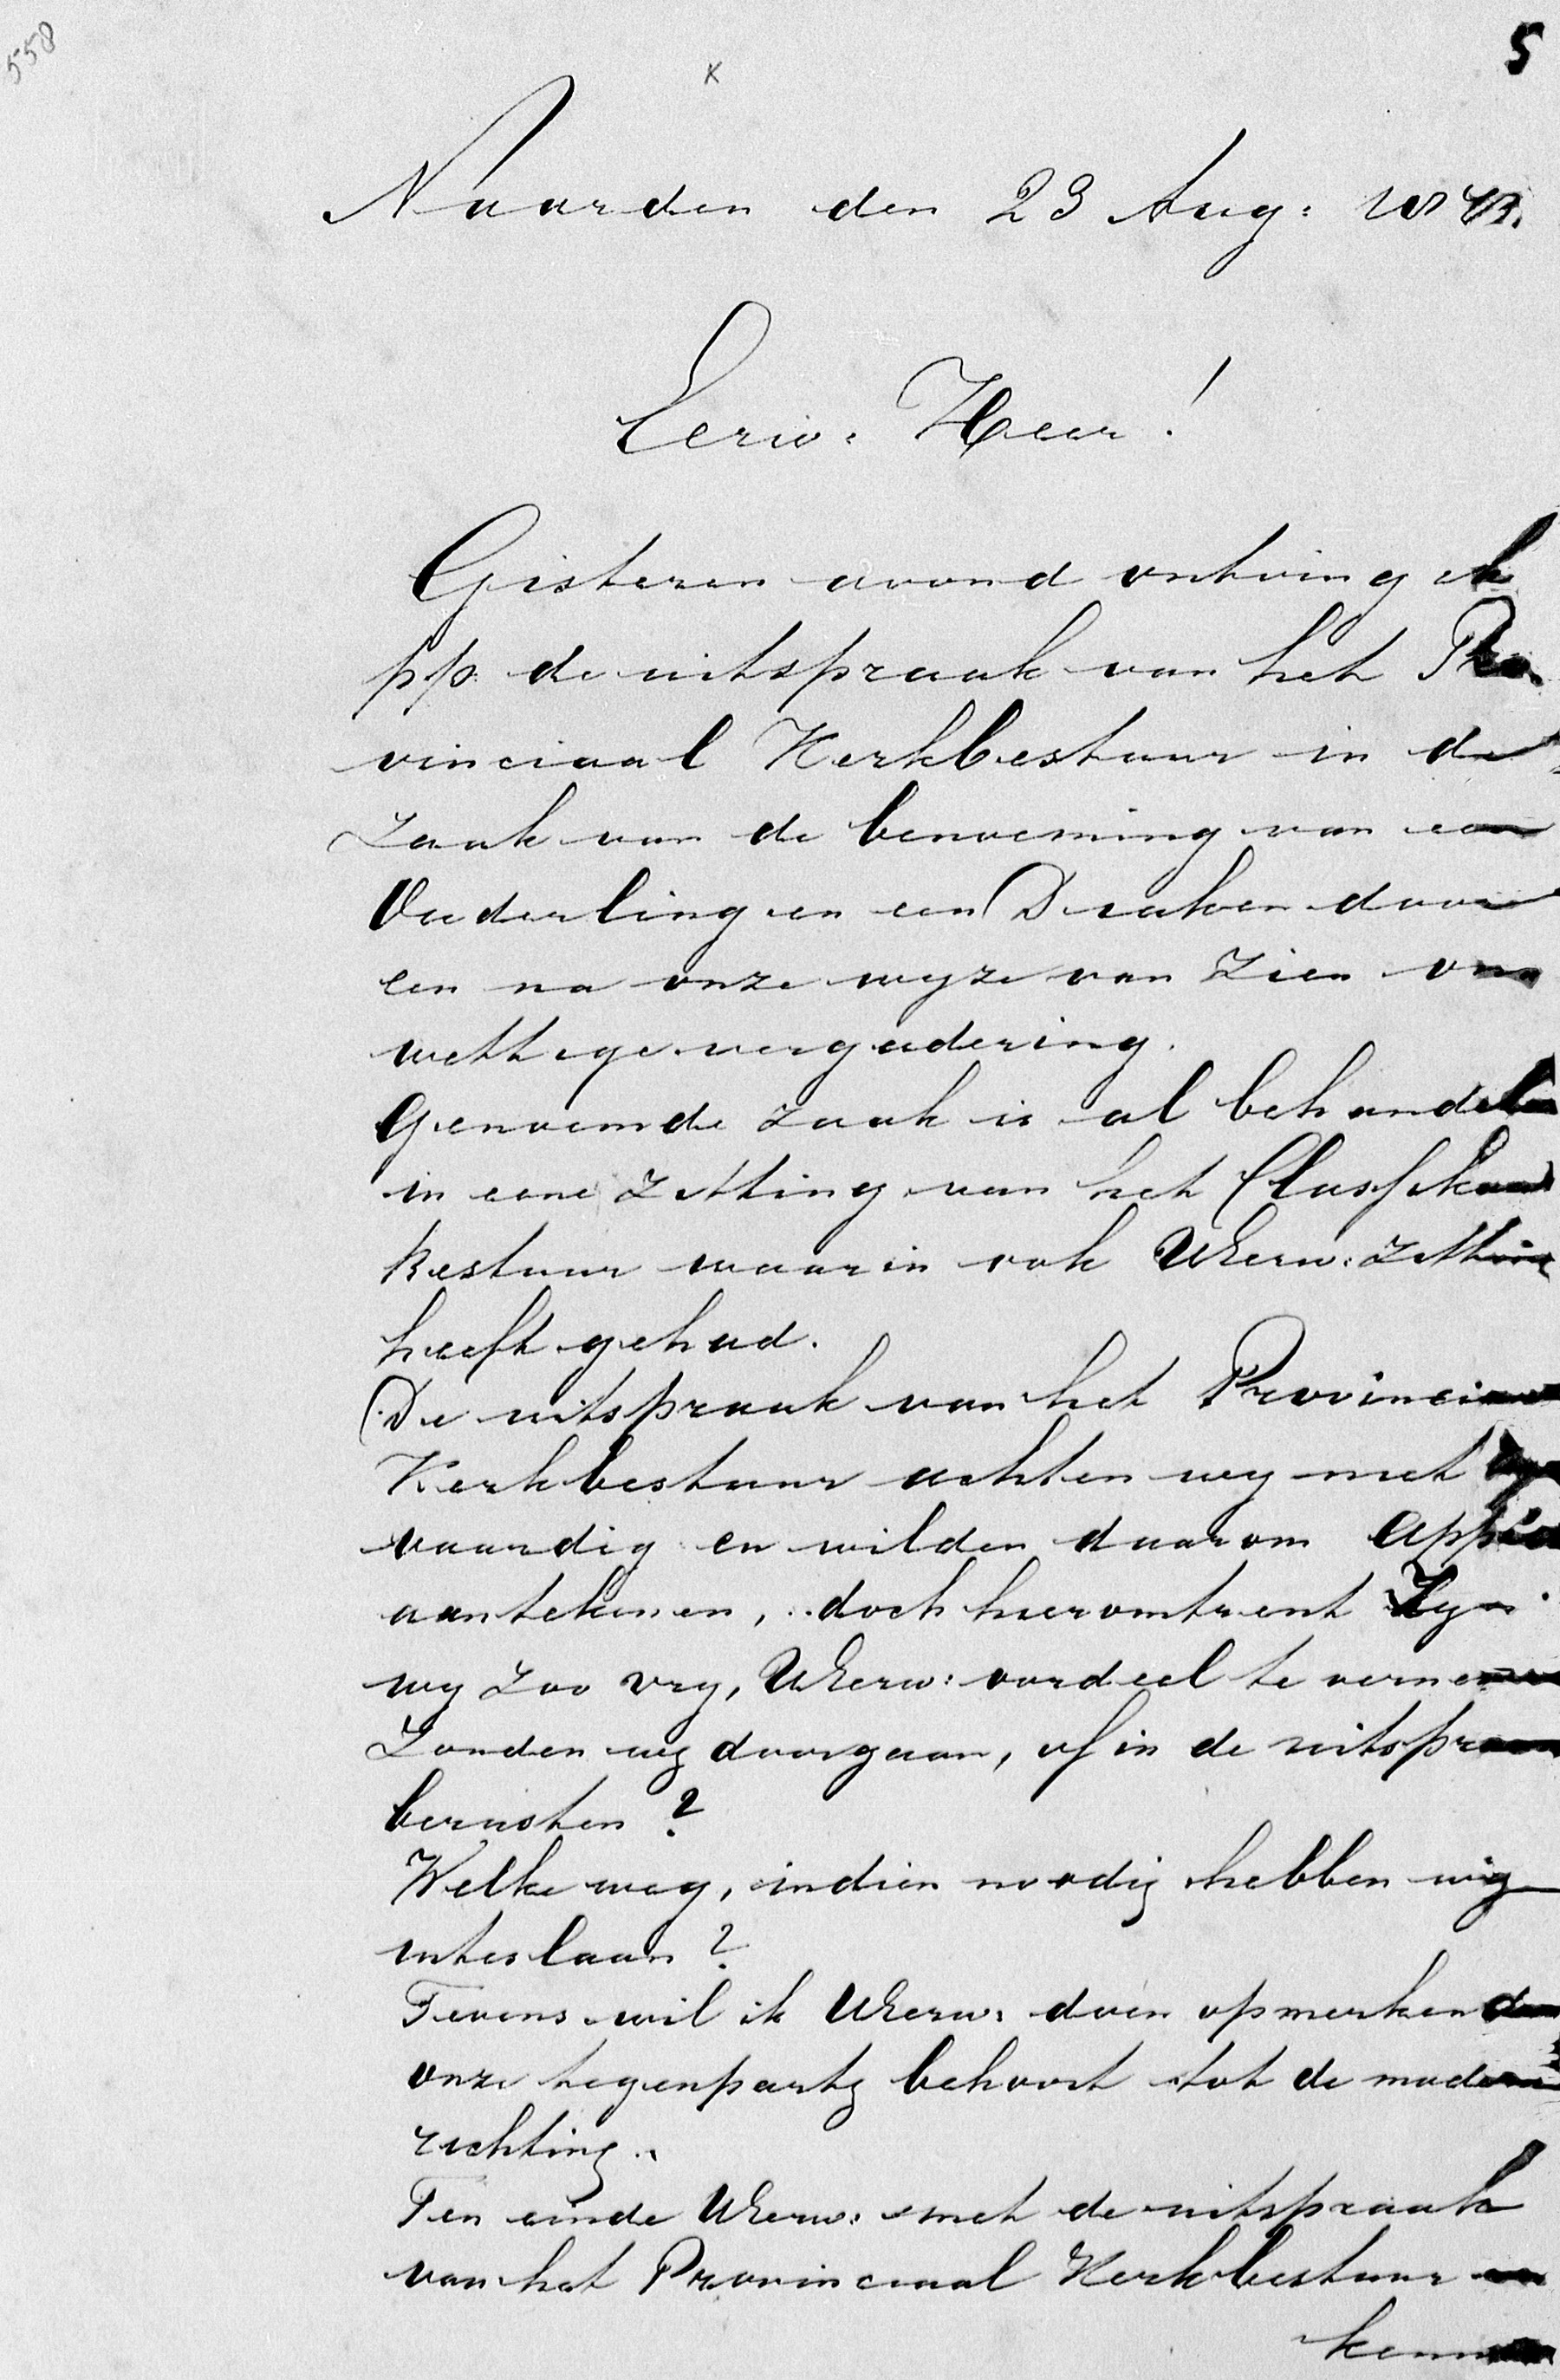 558
5
x
Naarden den 23 Aug: 187
Eerw: Heer!
Gisteren avond ontving ik
pp. de uitspraak van het Pro-
vinciaal Kerkbestuur in de
zaak van de benoeming van een
Ouderling en een Diaken door
een na onze wyze van zien on-
wettige vergadering.
Genoemde zaak is al behandel
in eene zitting van het Classikaal
Bestuur waarin ook UEerw: zitting
heeft gehad.
De uitspraak van het Provinciaal
Kerkbestuur achten wy niet
vaardig en wilden daarom appèl
aantekenen, doch hieromtrent zyn
wy zoo vry, UEerw: oordeel te vernemen
Zouden wy doorgaan, of in de uitspraak
berusten?
Welke weg, indien noodig hebben wy
inteslaan?
Tevens wil ik UEerw: doen opmerken d
onze tegenparty behoort tot de moderne
richting.
Ten einde UEerw: met de uitspraak
van het Provinciaal Kerkbestuur in
kennis